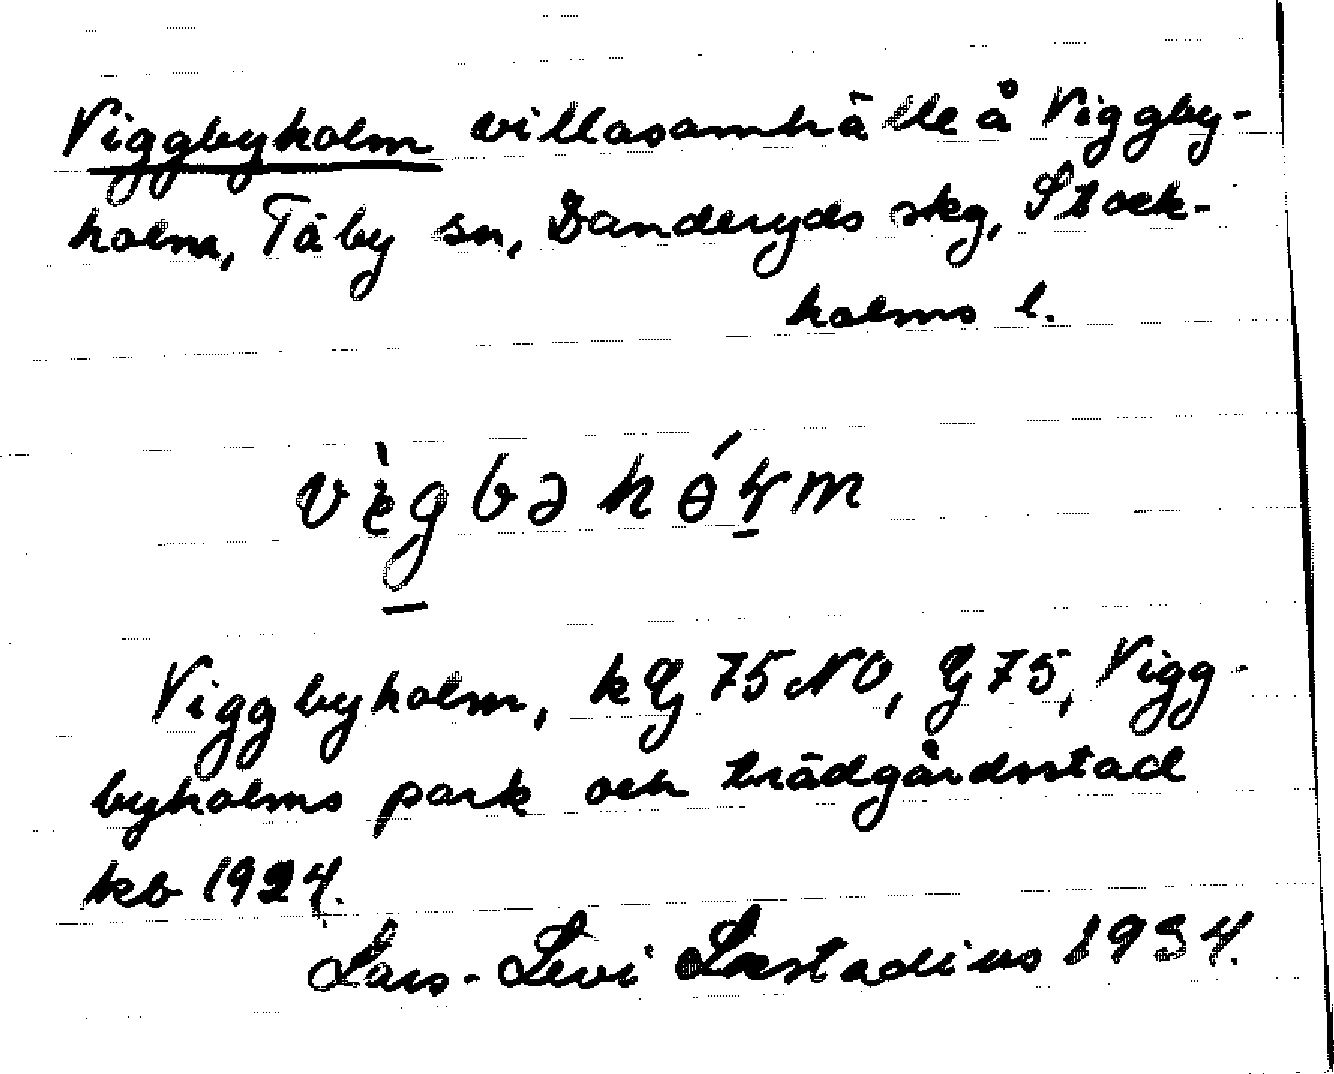 Viggbyholm villasamhälle å Viggby-
holm, Täby sn, Danderyds skg, Stock-
holms l.
Viggbyholm, k 75 NO, 75, Vigg-
byholms park och trädgårdsstad
kb 1924.
Lars-Levi Læstadius 1934.